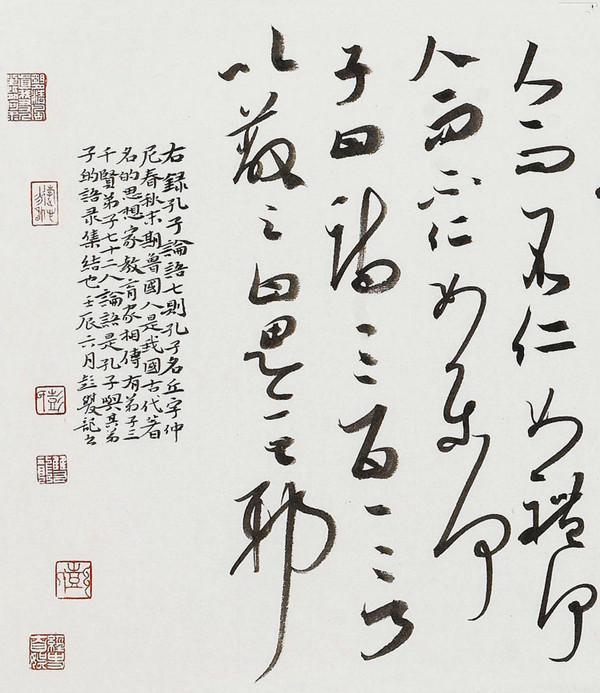 人而不仁如禮何
人而不仁如樂何
子曰詩三百一言
以蔽之曰思无邪
右録孔子論語七則孔子名丘字仲
尼春秋末期魯國人是我國古代著
名的思想家教育家相傳有弟子三
千賢弟子七十二人論語是孔子與其弟
子的語录集结也壬辰六月彭
彭
彭